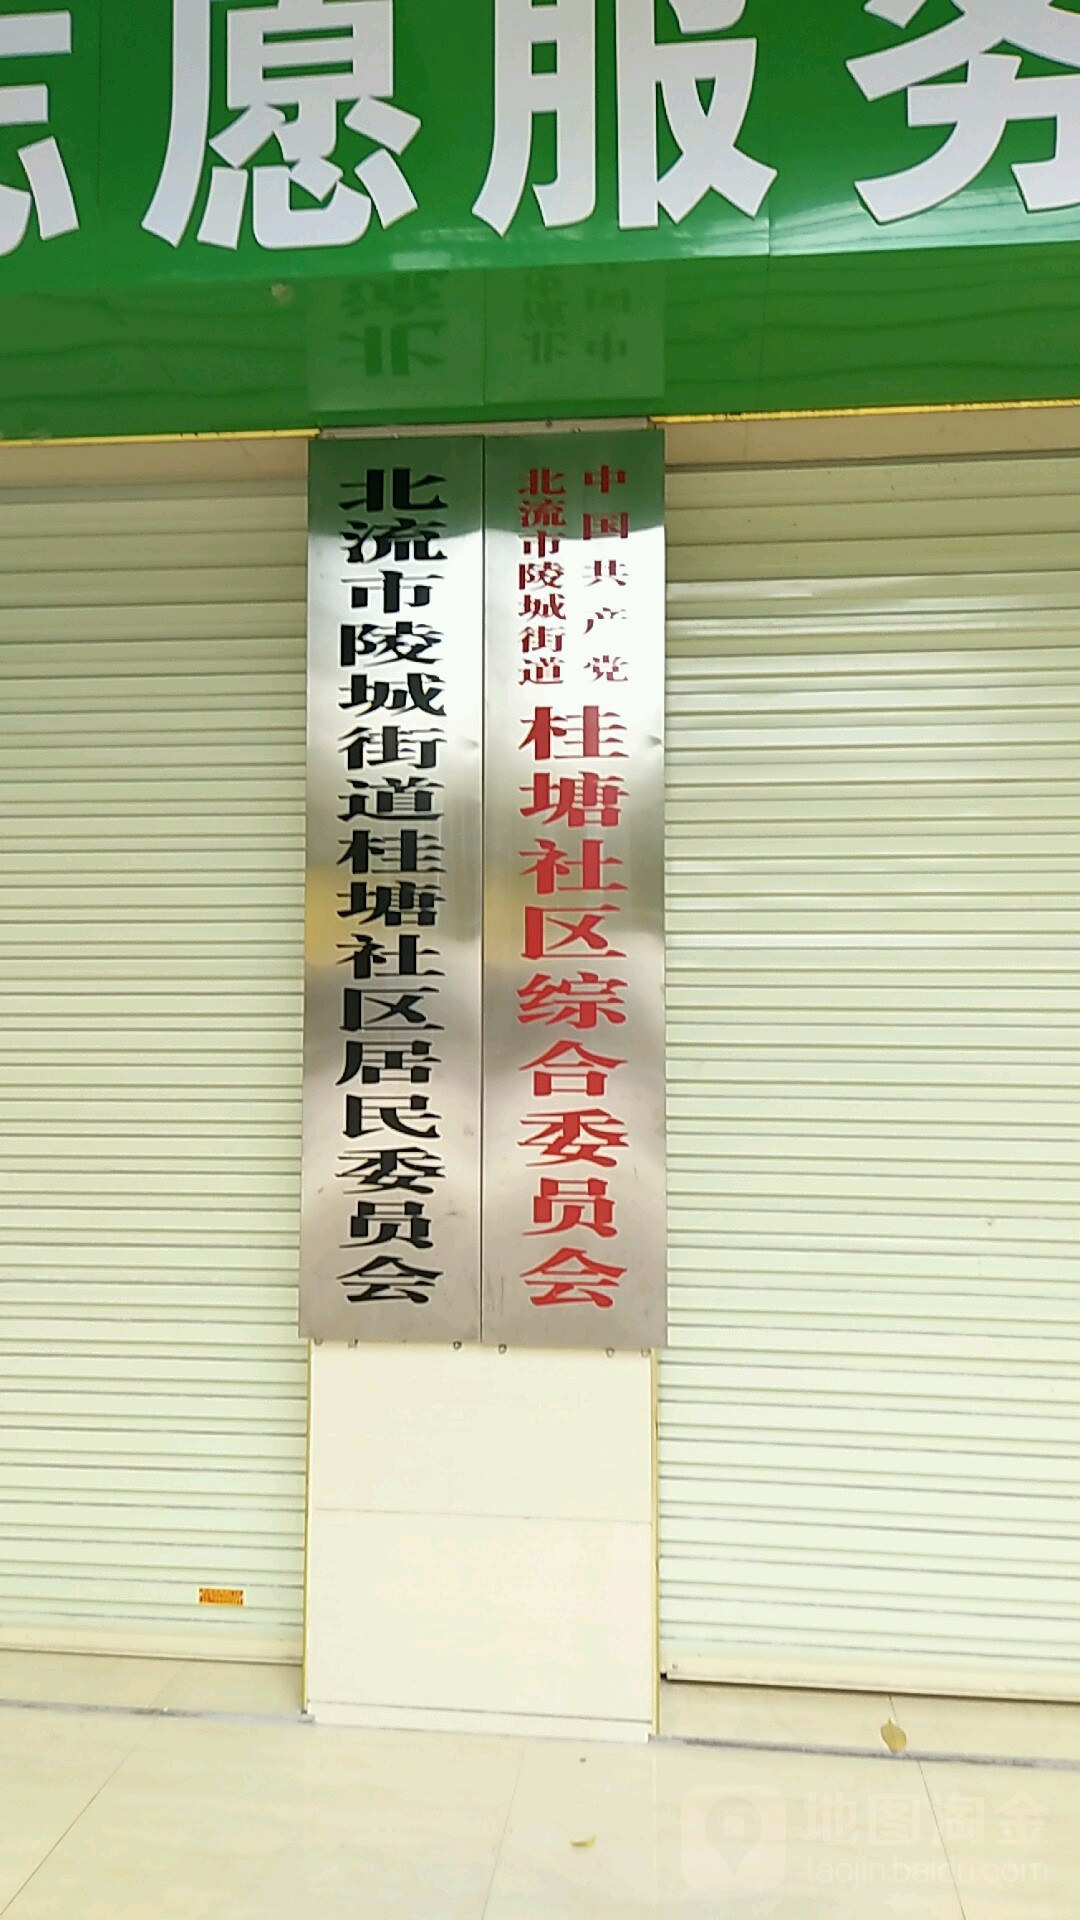 志愿服务
中国共产党
北流市陵城街道
桂塘社区综合委员会
北流市陵城街道桂塘社区居民委员会
地图淘金
taojin.baidu.com